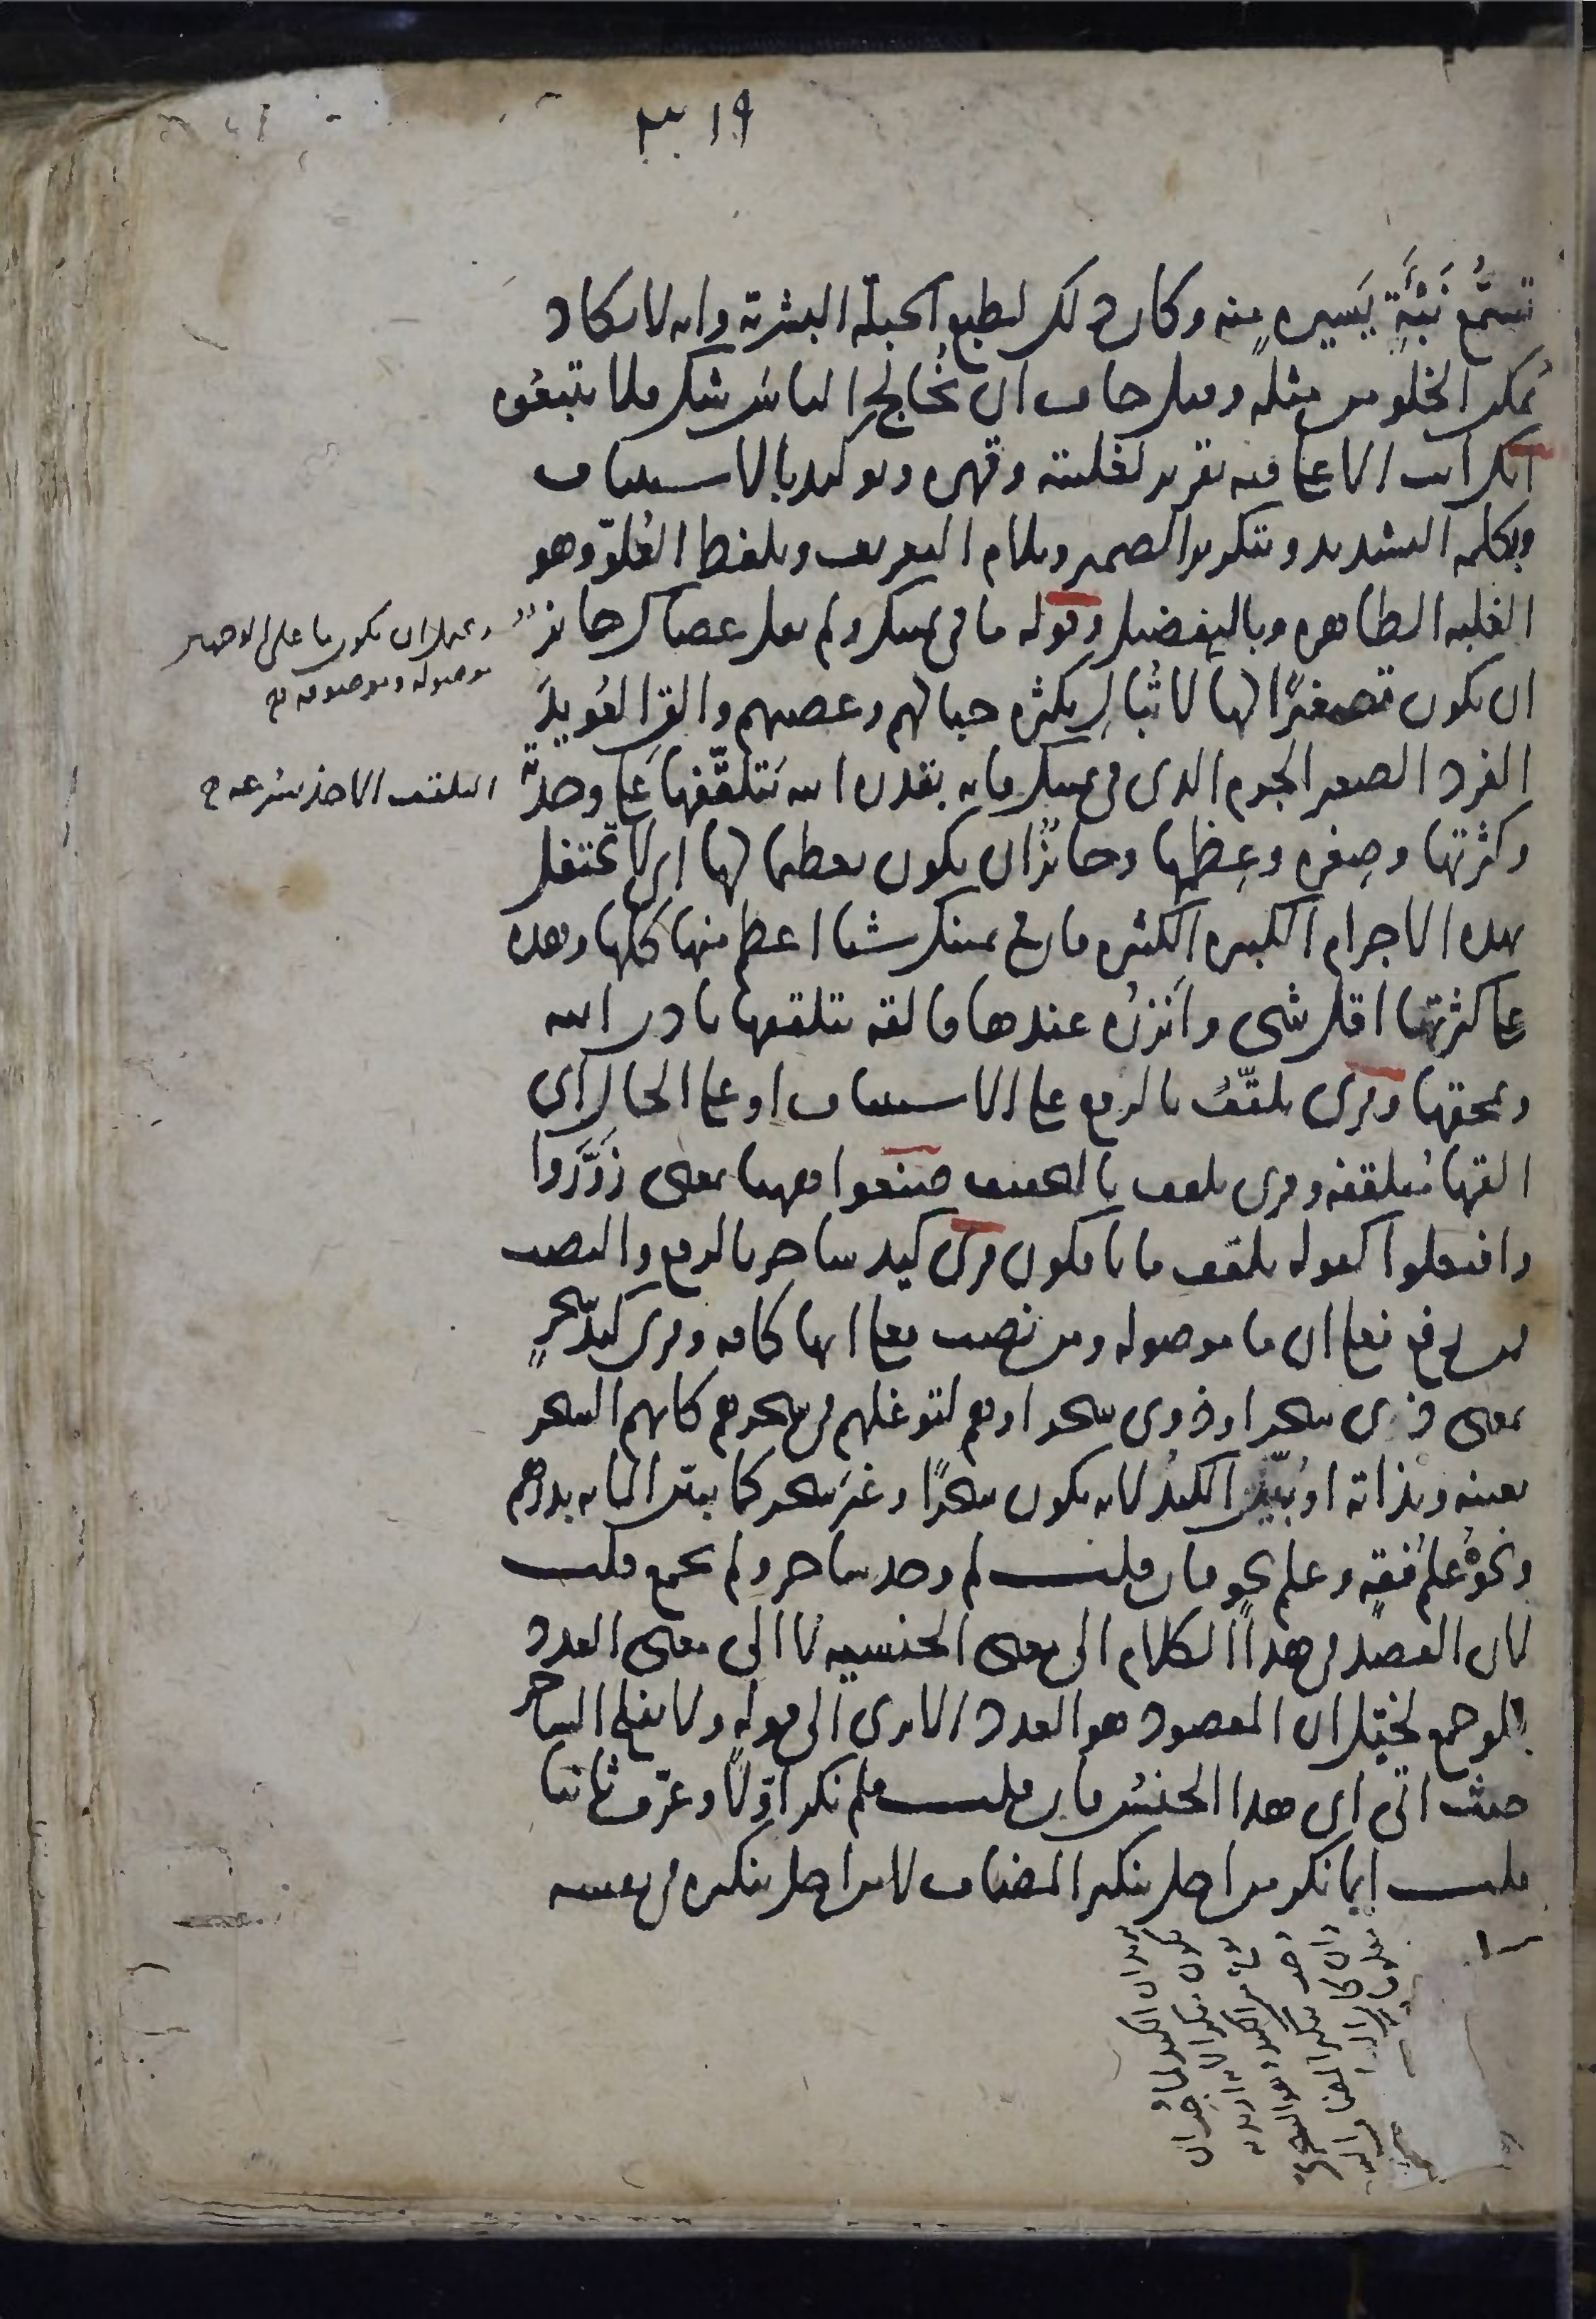 ١٩
تسمُّع نَبْأَةٍ يَسيرهٍ منه وكان ذلك لطبع الجبلّة البشرية وانه لا يكاد
يُمكن الخلو من مثله وقيل خاف ان يُخالج الناس شك فلا يتبعُوه
انك انت الاعلى فيه تقرير لغلبته وقهره وتوكيد بالاستيناف
وبكلمه التشديد وبتكرير الضمير وبلام التعريف وبلفظ العُلوّ وهو
الغلبه الظاهره وبالتفضيل وقوله ما في يمينك ولم يقل عصاك جائزٌ
ان يكون تصغيرًا لها لا تُبالِ بكثرة حبالهم وعصيهم والق العُويدَ
الفرد الصغير الجرم الذى في يمينك فانه بقدرة الله يتلقّفها على وحدته
وكثرتها وصِغره وعِظمها وجائزٌ ان يكون تعظيما لها اى لا تحتفل
بهذه الاجرام الكبيره الكثيره فان في يمينك شيا اعظم منها كلها وهذه
على كثرتها اقل شى وأنزرُه عندها فالقه يتلقفها باذن الله
ويمحقها وقرى تلقّفُ بالرفع على الاستيناف او على الحال اى
القها مُتلقفه وقرى تلقف بالتخفيف صنعوا ههنا بمعنى زَوَّرُوا
وافتعلوا كقوله تلقف ما يافكون قرى كيد ساحر بالرفع والنصب
فمن رفع فعلى ان ما موصوله ومن نصب فعلى انها كافه وقرى كيدُ سحرٍ
بمعنى ذى سحر او ذوى سحر او هم لتوغلهم في سحرهم كانهم السحر
بعينه وبذاته او بُيّن الكيدُ لانه يكون سحرًا وغير سحر كما يبيّن المايه بدرهم
ونحوُه علمُ فقهٍ وعلم نحوٍ فان قلت لم وحد ساحر ولم يجمع قلت
لان القصد في هذا الكلام الى معنى الجنسيه لا الى معنى العدد
فلو جمع لخيّل ان المقصود هو العدد الا ترى الى قوله ولا يفلح الساحر
حيث اتى اى هذا الجنس فان قلت فلم نكر اوّلا وعرّف ثانيا
قلت انما نكر من اجل تنكير المضاف لا من اجل تنكيره في نفسه
ويحتمل ان يكون ما على الوجهين
موصوله وموصوفه
التلقف الاخذ بسرعه